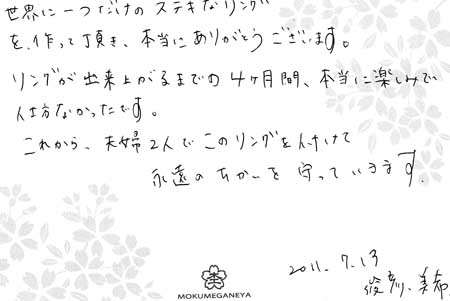 世界に一つだけのステキなリング
を作って頂き、本当にありがとうございます。
リングが出来上がるまでの4ヶ月間、本当に楽しみで
仕方なかったです。
これから、夫婦2人でこのリングを付けて
永遠のちかいを守っていきます。
2011.7.13
MOKUMEGANEYA